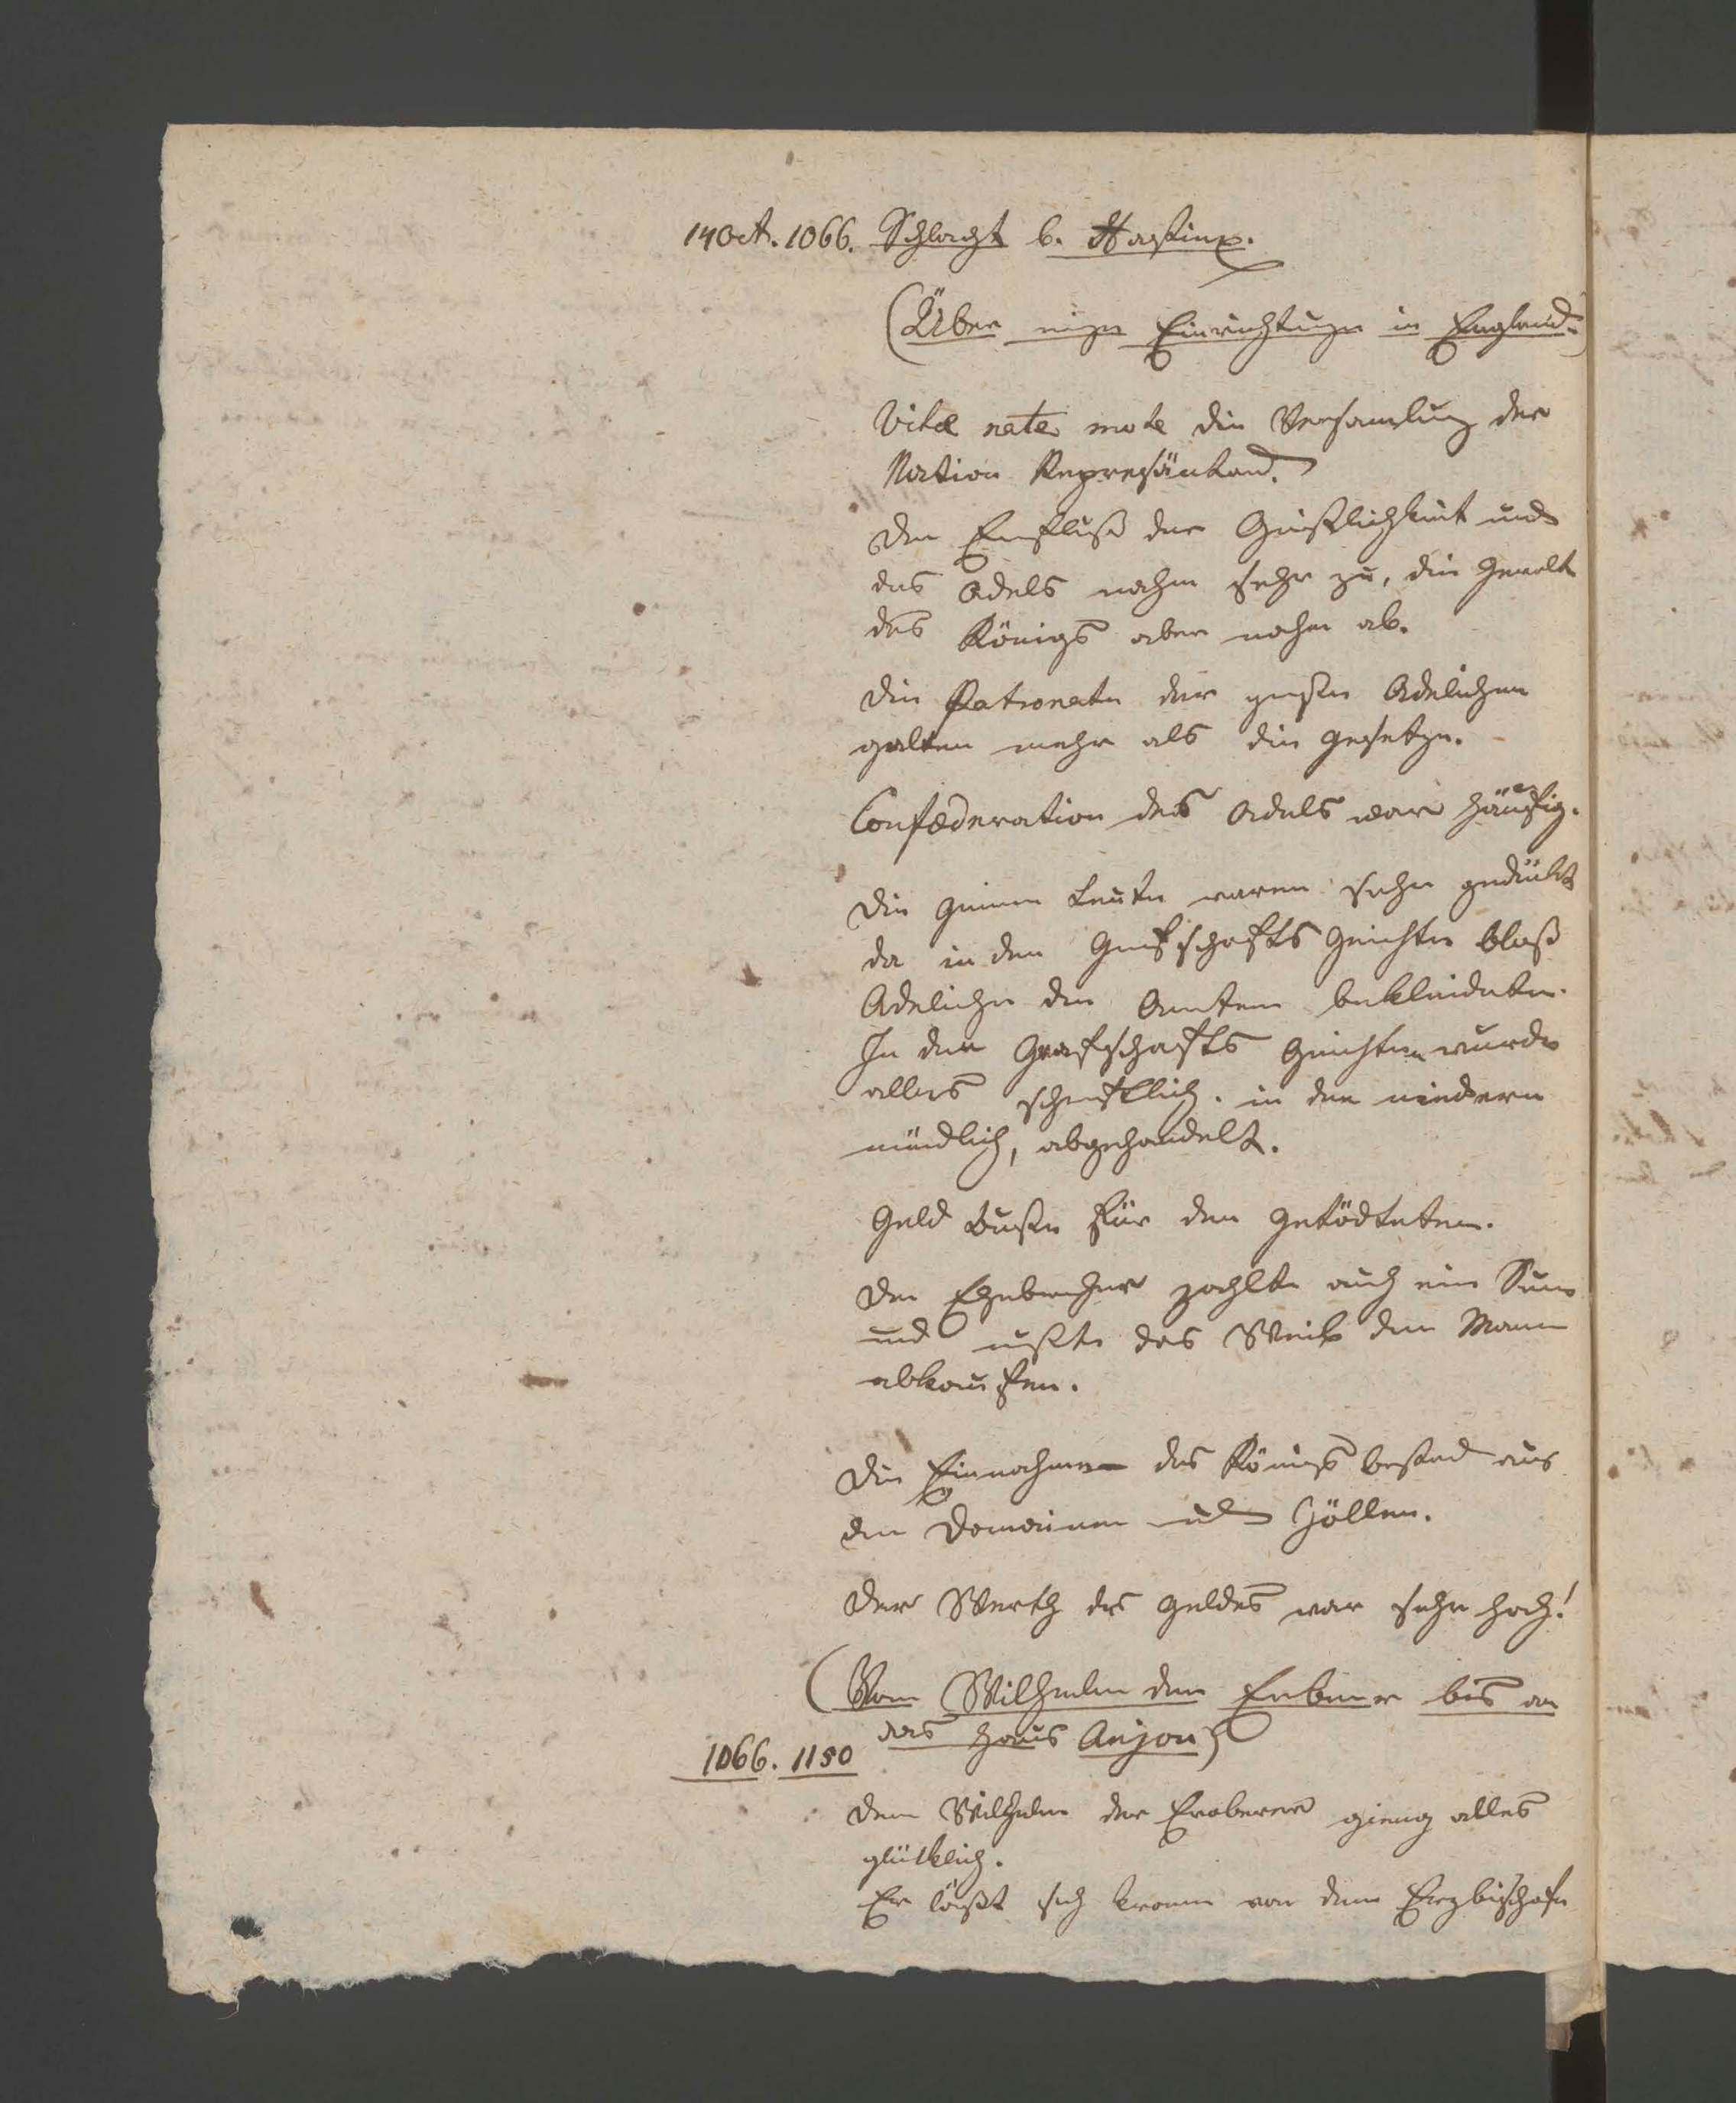 14 Oct. 1066. Schlacht b. Hastings.
(Über einige Einrichtungen in England.)
Vitae nate mote die Versamlung der
Nation Repräsäntand.
Der Einfluß der Geistlichkeit und
des Adels nahm sehr zu, die Gewalt
des Königs aber nahm ab.
Die Patronate der großen Adelichen
galten mehr als die Gesetze.
Confœderation des Adels war häufig.
Die gemeinen Leute waren sehr gedrükt
da in den Grafschafts Gerichten bloß
Adeliche die Aemter bekleideten.
In den Grafschafts Gerichten wurde
alles schriftlich. in den niedern
mündlich, abgehandelt.
Geld Buße für den getödteten.
Der Ehebrecher zahlte auch eine Sum
und mußte das Weib dem Mann
abkaufen.
Die Einnahme des Königs bestand aus
den Domainen und Zöllen.
Der Werth des Geldes war sehr hoch!
(Vom Wilhelm dem Eroberer bis an
das Haus Anjou)
1066. 1150
Dem Wilhelm der Eroberer gieng alles
glücklich.
Er läßt sich kronen von dem Erzbischofe